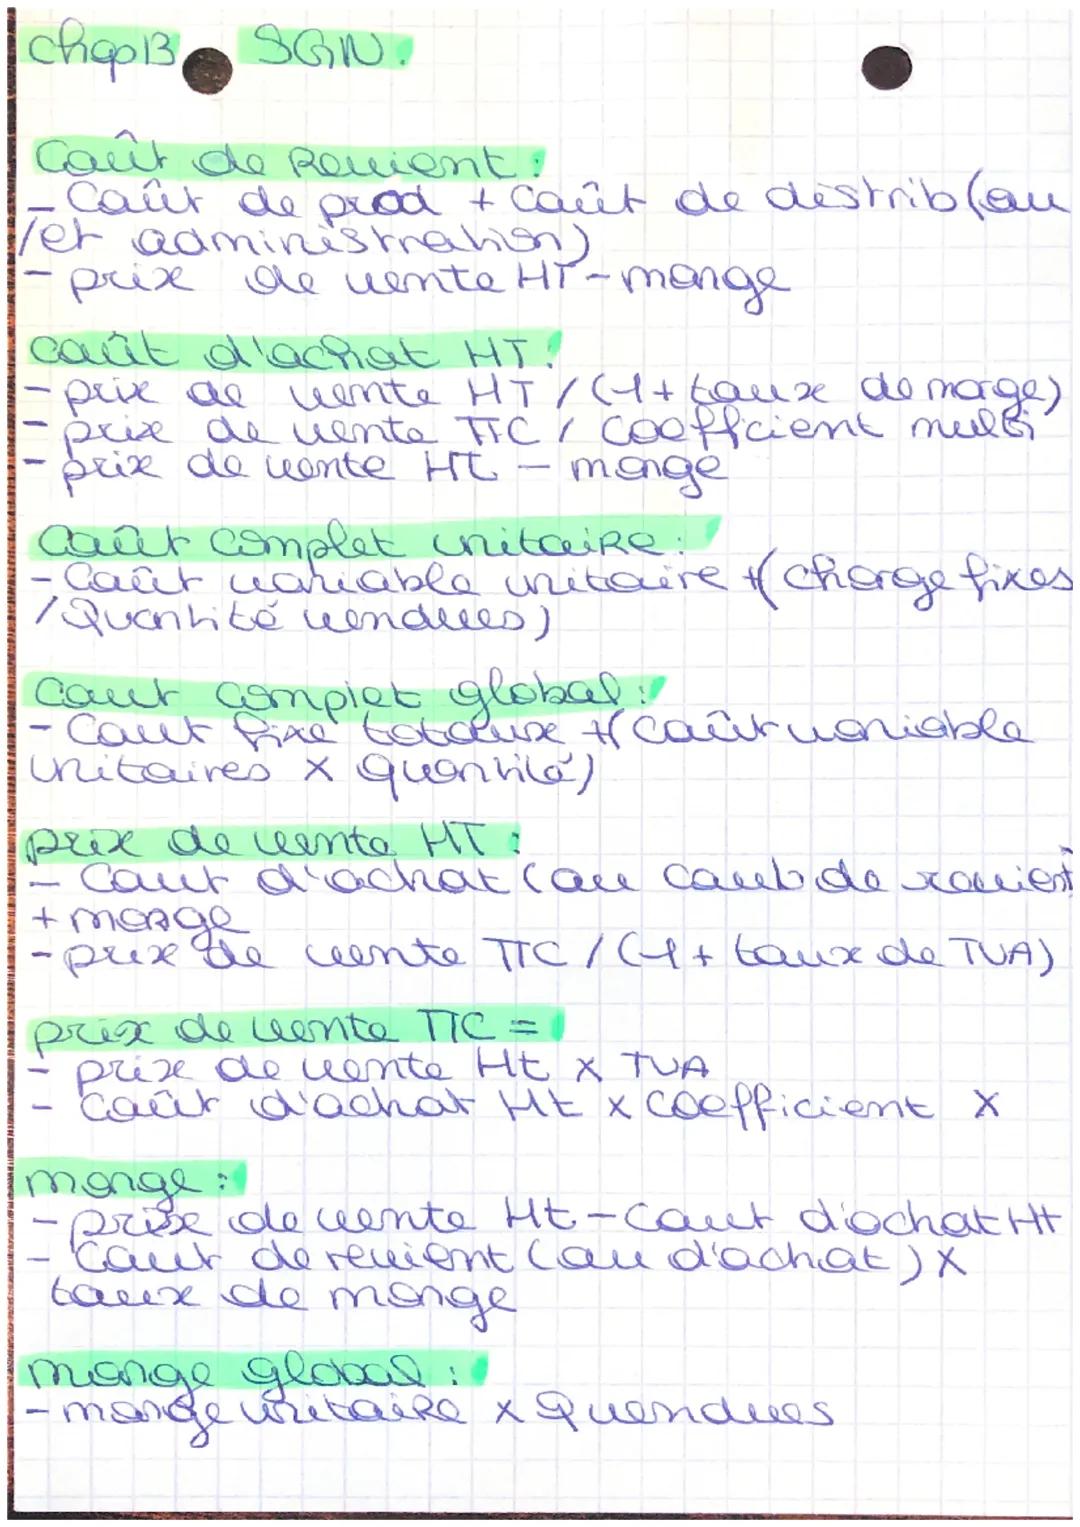 chap13 SGN:
Coût de Revient:
- Coût de prod + coût de distrib (ou
/et administration)
- prix de vente HT - marge
coût d'achat HT:
- prix de vente HT / (1 + taux de marge)
- prix de vente TTC / coefficient multi
- prix de vente HT - marge
Coût complet unitaire:
- Coût variable unitaire + (charge fixes
/ Quantité vendues)
Cout complet global:
- Cout fixe totaux + (coût variable
unitaires x quantité)
prix de vente HT:
- Cout d'achat (ou cout de revient
+ marge
- prix de vente TTC / (1 + taux de TVA)
prix de vente TTC =
- prix de vente Ht x TVA
- Coût d'achat Ht x coefficient x
marge:
- prix de vente Ht - cout d'achat Ht
- Cout de revient (ou d'achat) x
taux de marge
marge global:
- marge unitaire x Q vendues